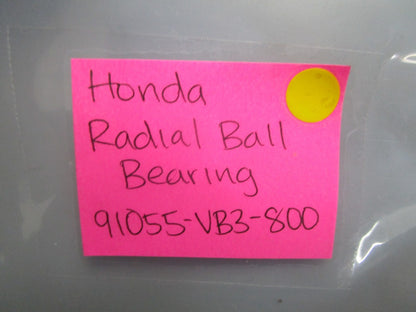 Honda
Radial Ball
Bearing
91055-VB3-800